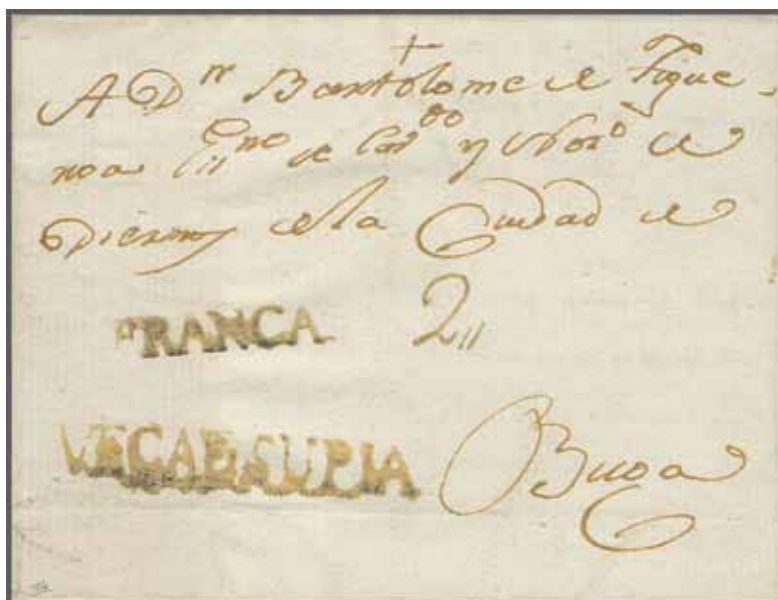 +
A Dn Bartolome de Figue-
roa Essno de Cavdo y Notrio de
Diezmos de la Ciudad de
FRANCA 2
VEGA DE SUPIA Buga